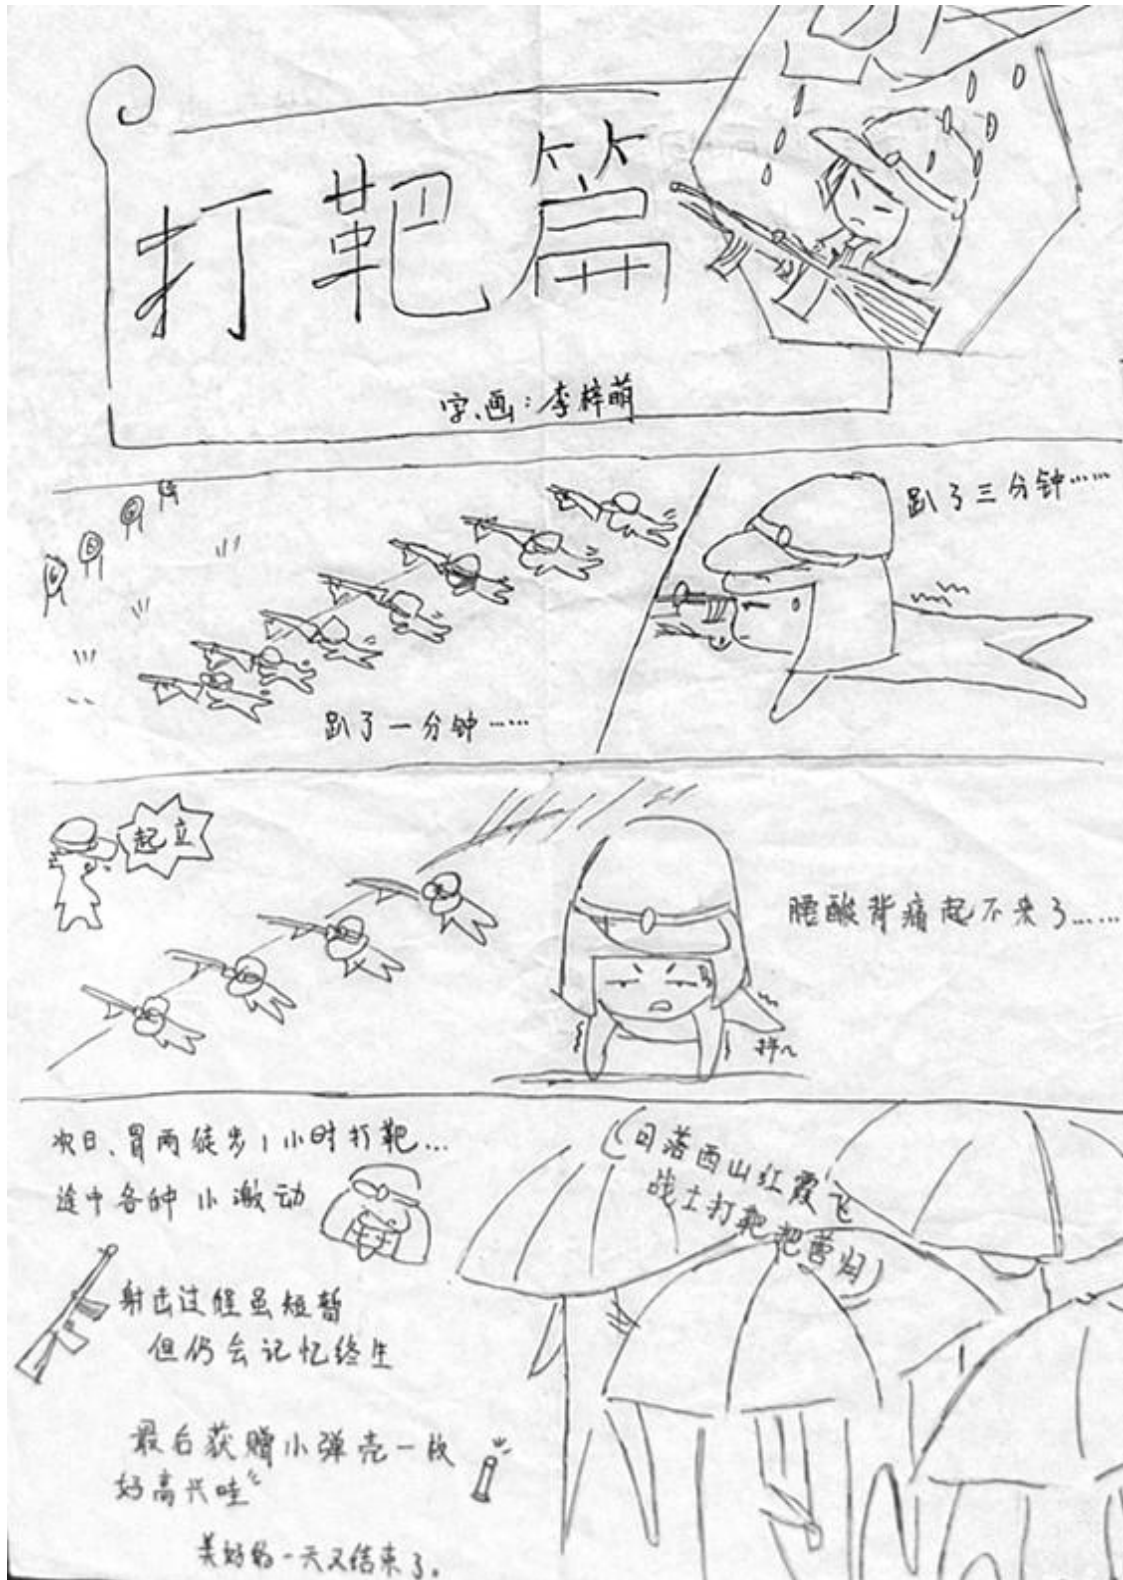 打靶篇
字、画：李梓萌
趴了一分钟……
趴了三分钟……
起立
腰酸背痛起不来了……
次日、冒雨徒步1小时打靶…
途中各种小激动
射击过程虽短暂
但仍会记忆终生
最后获赠小弹壳一枚
好高兴哇
美好的一天又结束了。
日落西山红霞飞
战士打靶把营归